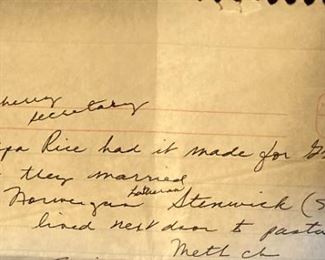 cherry
secretary
pa Rice had it made for G
they married
Lutheran
Norwegian Stenwick (S
lived next door to pasto
Meth ch